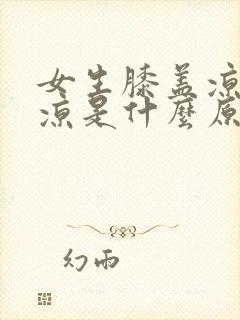 女生膝盖凉
凉是什麼原
幻雨